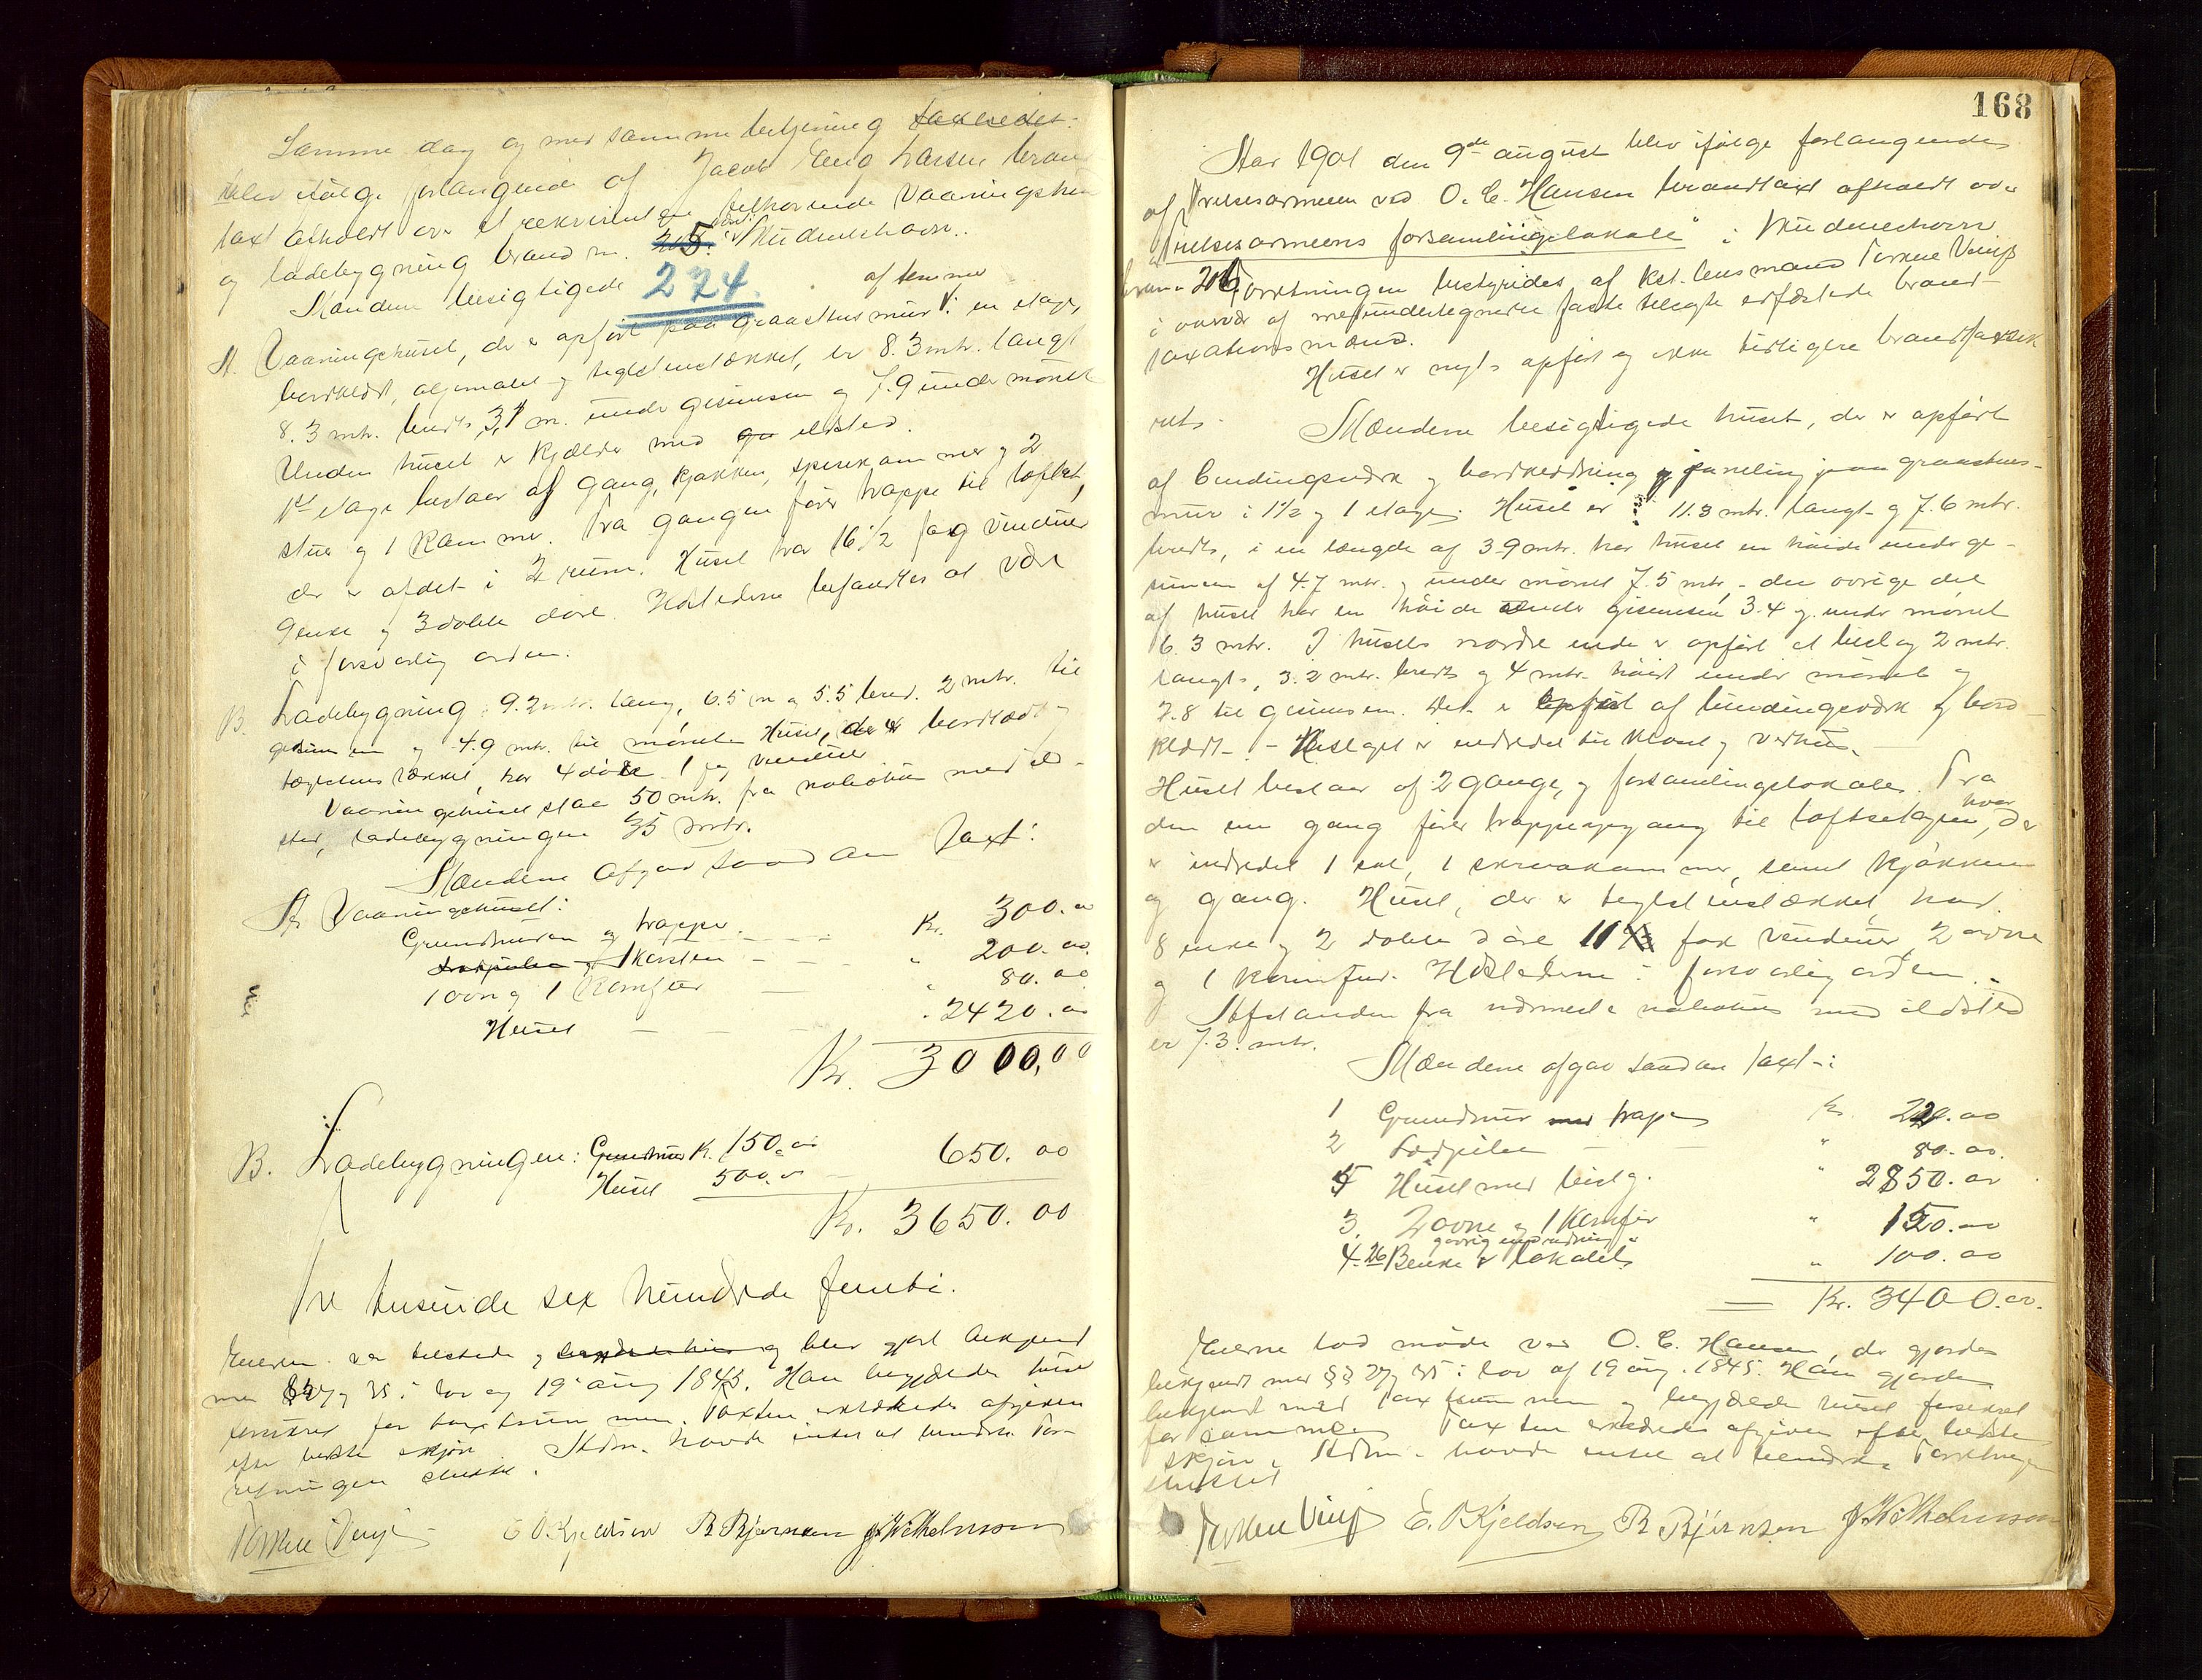 Samme dag og med samme betjening
blev ifølge forlangende af Jacob Larsen brand
taxt afholdt over et rekvirenten tilhørende Vaaningshus
og ladebygning brand nr. 205 i Skudeneshavn.
Mændene besigtigede 224.
A. Vaaningshuset, der er opført paa Graastensmur i en etage,
bordklædt, oljemalet og teglstenstækket, er 8.3 mtr. langt
8.3 mtr. bredt, 3,1 m. under gesimsen og 7.9 under mønet
Under huset er Kjælder med ildsted.
1ste etage bestaar af gang, kjøkken, spisekammer og 2
stuer og 1 Kammer. Fra gangen fører trappe til loftet,
der er afdelt i 2 rum. Huset har 16 1/2 fag vinduer
9 enke og 3 doble døre Ildstederne befandtes at være
i forsvarlig orden.
B. Ladebygning. 9.2 mtr. lang, 6.5 m og 5.5 bred. 2 mtr. til
gesimsen og 4.9 mtr. til mønet. Huset, der er bordklædt og
teglstenstækket, har 4 døre 1 fag vinduer
Vaaningshuset staar 50 mtr. fra nabohus med ild-
sted, ladebygningen 35 mtr.
Mændene afgav saadan Taxt:
A Vaaningshuset:
Grundmuren og trappe. Kr. 300.00
Skorsten " 200.00
1 ovn og 1 Komfur " 80.00
Huset 2420.00
Kr. 3000,00
B. Ladebygningen: Grundmur K. 150.00 650.00
Huset 500.00
Kr. 3650.00
Tre tusinde sex hundrede femti.
Eieren var tilstede og blev gjort bekjend
med §§ 27 og 35 i lov af 19 aug 1845. Han begjærede huset
forsikret for taxtsummen. Taxten erklæredes afgiven
efter bedste skjøn. Lstdm. havde intet at bemærke. For-
retningen sluttet.
Torkel Vinje E O. Kjeldsen B. Bjørnsen J. Wilhelmsen
168
Aar 1901 den 9de august blev ifølge forlangende
af Frelsesarmeen ved O. C. Hansen brandtaxt afholdt over
"Frelsesarmeens forsamlingslokale" i Skudeneshavn
br. nr. 206 Forretningen bestyredes af Kst. lensmand Torkel Vinje
i overvær af medundertegnede faste tillagte edfæstede brand-
taxationsmænd.
Huset er nyt opført og ikke tidligere brandtaxe-
ret.
Mændene besigtigede huset, der er opført
af bindingsværk og bordklædning og paneling paa graastens-
mur i 1 1/2 og 1 etage. Huset er 11.3 mtr. langt og 7.6 mtr.
bredt, i en længde af 3.9 mtr. har huset en høide under ge-
simsen af 4.7 mtr. og under mønet 7.5 mtr, den øvrige del
af huset har en høide under gesimsen 3.4 og under mønet
6.3 mtr. I husets nordre ende er opført et bislag 2 mtr.
langt, 3.2 mtr. bredt og 4 mtr. høit under mønet og
2.8 til gesimsen. Det er opført af bindingsværk og bord-
klædt. - Bislaget er indredet til Kloset og vedhus.
Huset bestaar af 2 gange, og forsamlingslokale. Fra
den ene gang fører trappeopgang til loftsetagen, hvor der
er indredet 1 sal, 1 kammer, samt kjøkken
og gang. Huset, der er teglstenstækket, har
8 enke og 2 doble døre 11 fag vinduer 2 ovne
og 1 komfur. Ildstederne i forsvarlig orden.
Afstanden fra nærmeste nabohus med ildsted
er 7.3. mtr.
Mændene afgav saadan taxt:
1 Grundmur med trappe Kr. 220.00
2 " 80.00
5 Huset med bislag. " 2850.00
3. 2 ovne og 1 Komfur " 150.00
4. 26 Benke i lokalet og øvrig indredning " 100.00
Kr. 3400.00.
Eierne lod møde ved O. C. Hansen, der gjordes
bekjendt med §§ 27 og 35 i lov af 19 aug. 1845. Han gjordes
bekjend med taxtsummen og begjærede huset forsikret
for samme. Taxten erklæredes afgiven efter bedste
skjøn. Lstdm. havde intet at bemærke. Forretningen
sluttet
Torkel Vinje E. O Kjeldsen B Bjørnsen J. Wilhelmsen